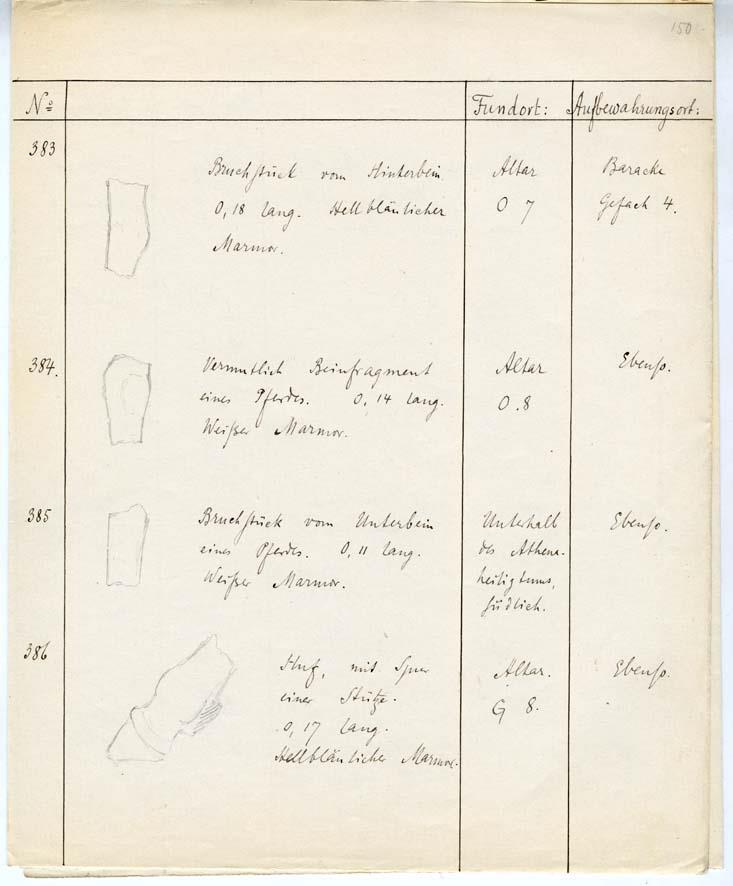 150
No Fundort: Aufbewahrungsort:
383
Bruchstück vom Hinterbein
0,18 lang. Hellbläulicher
Marmor.
Altar
O 7
Baracke
Gefach 4.
384.
Vermutlich Beinfragment
eines Pferdes. 0,14 lang.
Weißer Marmor.
Altar
O.8
Ebenso.
385
Bruchstück vom Unterbein
eines Pferdes. 0,11 lang.
Weißer Marmor.
Unterhalb
des Athena-
heiligtums,
südlich.
Ebenso.
386
Huf, mit Spur
einer Stütze.
0,17 lang.
Hellbläulicher Marmor.
Altar.
G 8.
Ebenso.